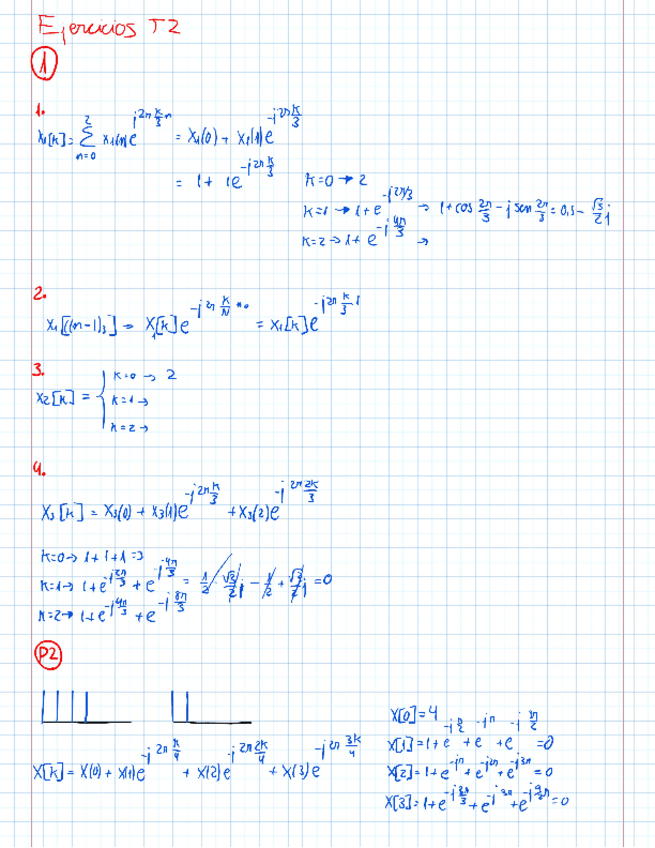 Ejercicios T2
1
1.
X₁[k] = Σ_{n=0}^{2} x₁(n) e^{j2π k/3 n} = x₁(0) + x₁(1)e^{-j2π k/3}
= 1 + 1e^{-j2π k/3}
k=0 → 2
k=1 → 1+e^{-j2π/3} → 1+cos 2π/3 - j sen 2π/3 = 0,5 - √3/2 j
k=2 → 1+e^{-j 4π/3} →
2.
x₁[((n-1)₃] → X₁[k]e^{-j2π k/N n₀} = X₁[k]e^{-j2π k/3 1}
3.
X₂[k] = { k=0 → 2
k=1 →
k=2 →
4.
X₃[k] = X₃(0) + X₃(1)e^{-j2π k/3} + X₃(2)e^{-j 2π2k/3}
k=0 → 1+1+1=3
k=1 → 1+e^{-j 2π/3} + e^{-j 4π/3} = =0
k=2 → 1+e^{-j 4π/3} + e^{-j 8π/3}
P2
X[k] = X(0) + X(1)e^{-j2π k/4} + X(2)e^{-j2π 2k/4} + X(3)e^{-j2π 3k/4}
X[0]=4
X[1]=1+e^{-j π/2} + e^{-jπ} + e^{-j 3π/2} =0
X[2]=1+e^{-jπ} + e^{-j2π} + e^{-j3π} =0
X[3]=1+e + e^{-j3π} + e^{-j 9/2 π} =0